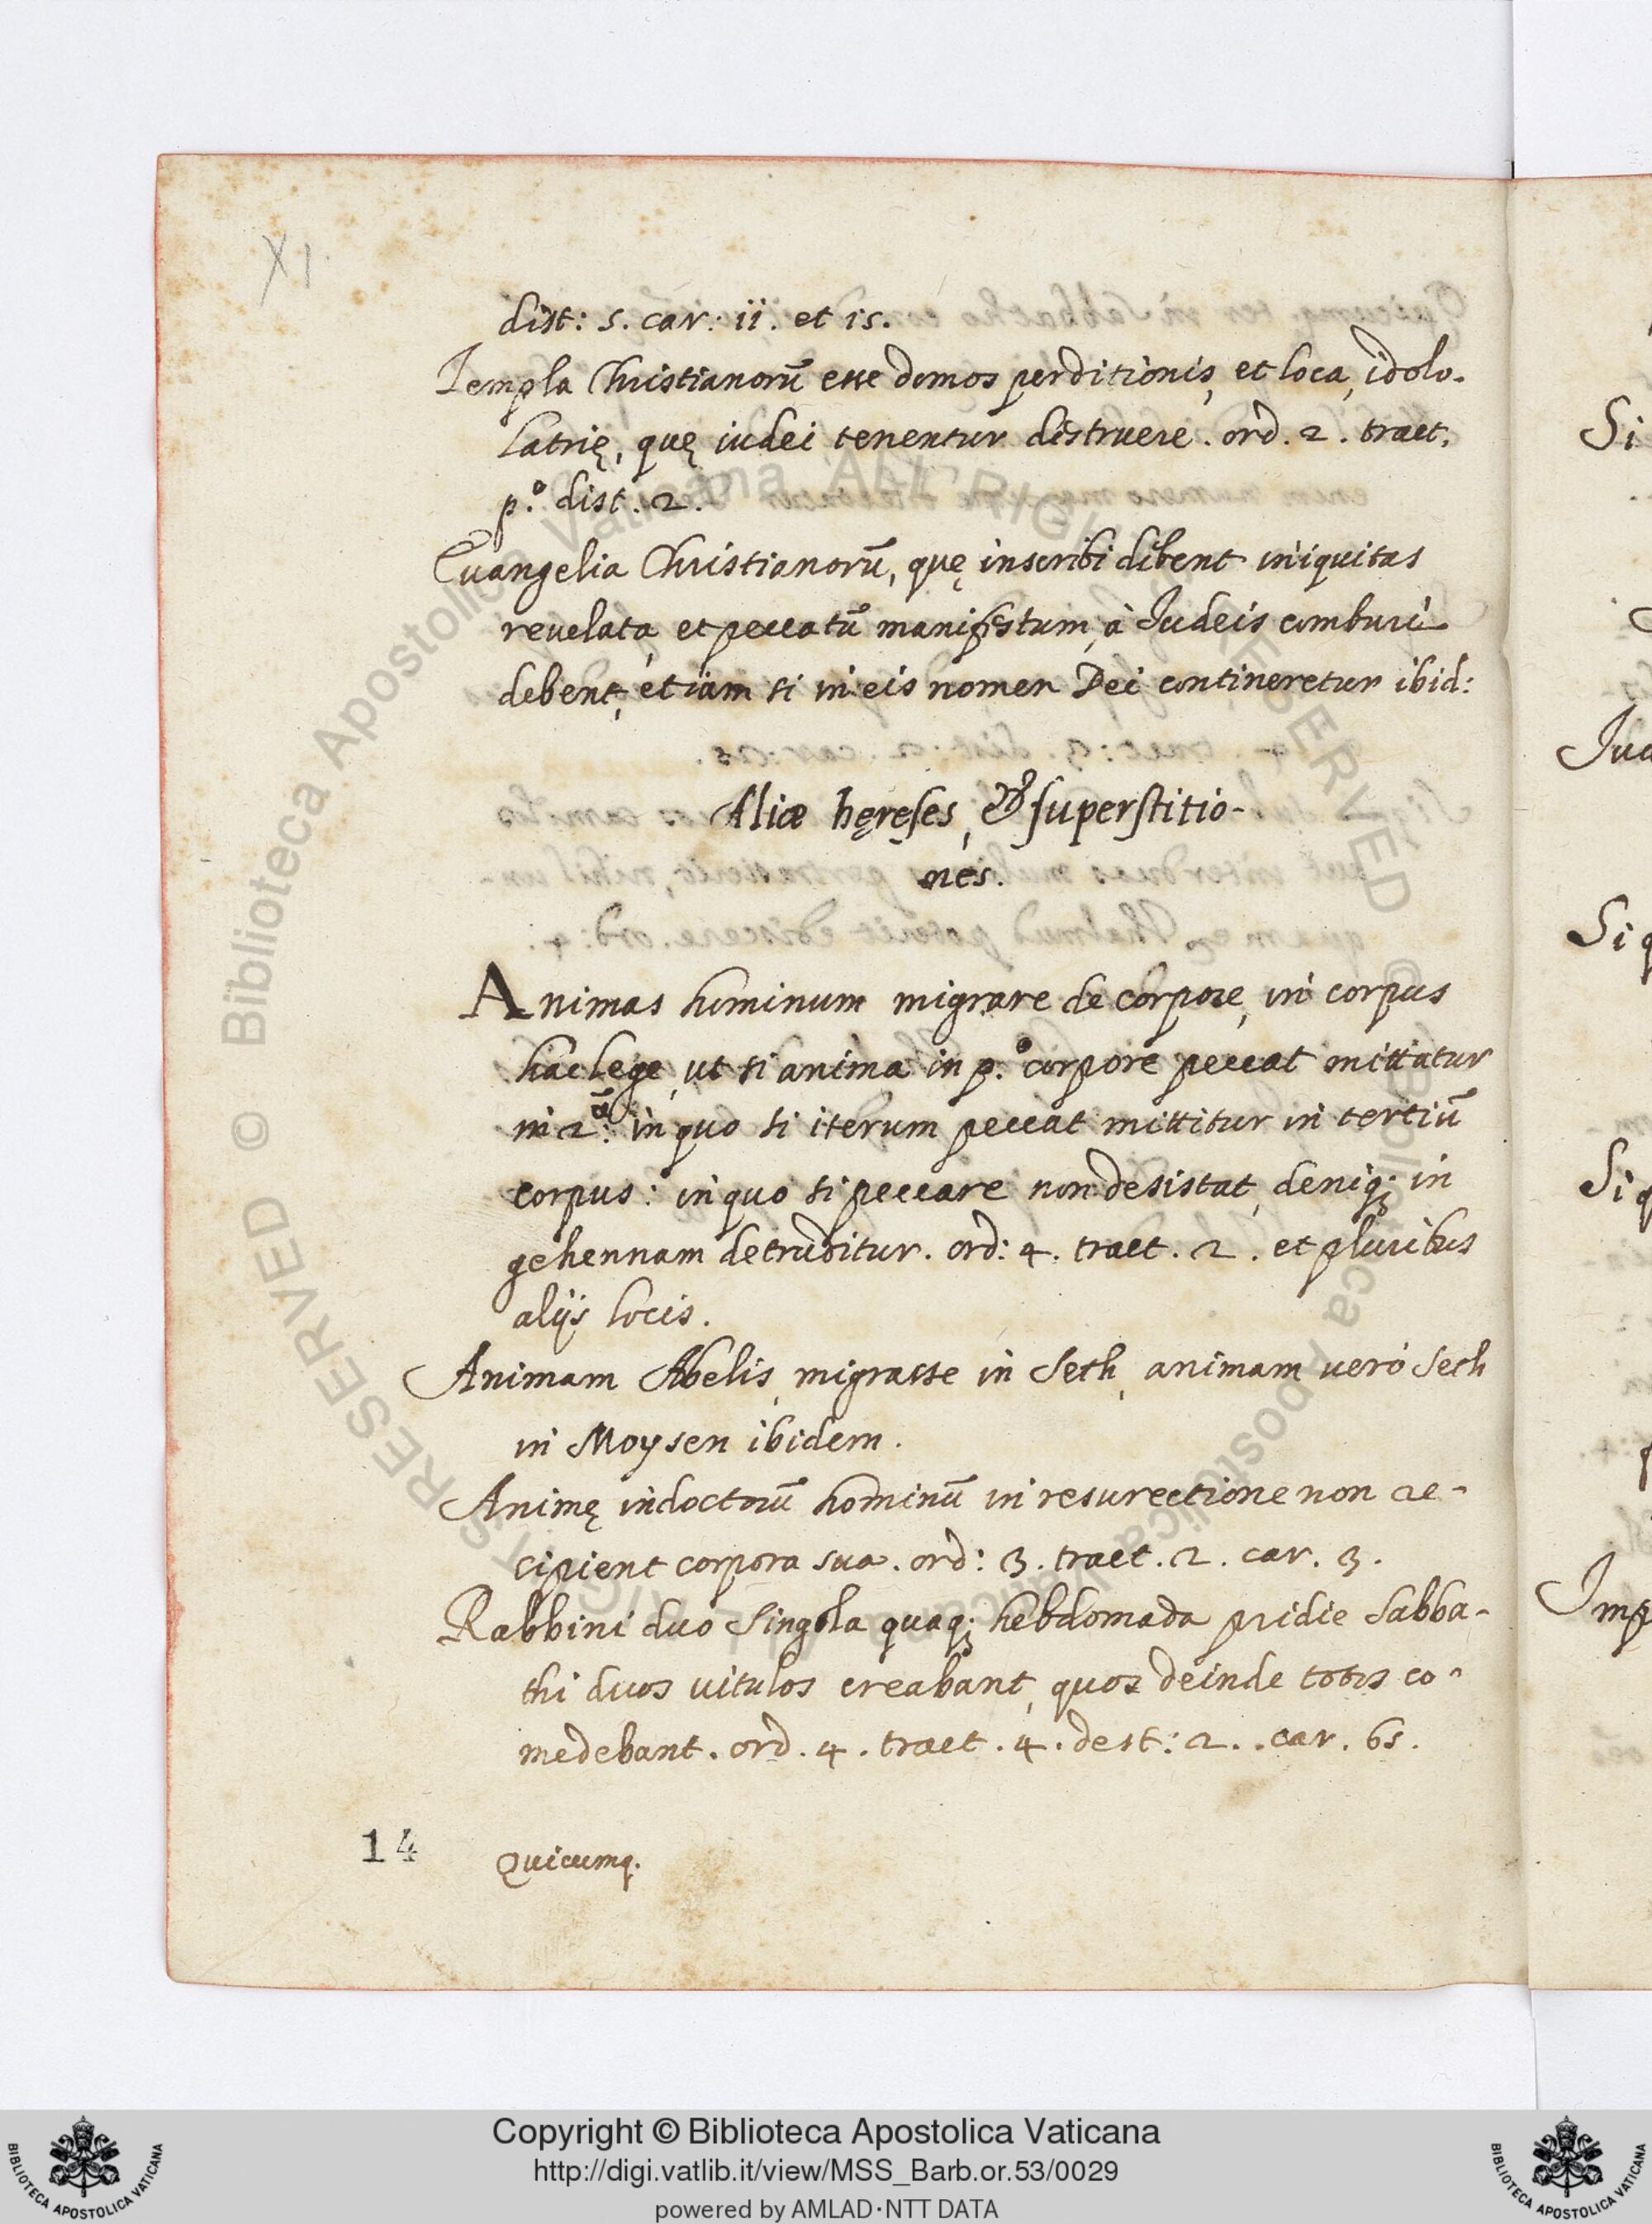 XI
dist: 5. car: ii. et is.
Templa Christianorũ esse domos perditionis, et loca, idolo-
latrię, quę iudei tenentur distruere. ord. 2. tract.
p.º dist. 2.
Euangelia Christianorũ, quę inscribi dibent iniquitas
reuelata, et peccatũ manifestum, à Iudeis comburi
debent, etiam si in eis nomen Dei contineretur ibid:
Aliæ hęreses, & superstitio-
nes.
Animas hominum migrare de corpore, in corpus
hac lege, ut si anima in p.º corpore peccat mittatur
in 2.ũ in quo si iterum peccat mittitur in tertiũ
corpus: in quo si peccare non desistat, deniq; in
gehennam detruditur. ord: 4. tract. 2. et pluribus
alijs locis.
Animam Abelis, migrasse in Seth, animam verò Seth
in Moysen ibidem.
Animę indoctorũ hominũ in resurectione non ac-
cipient corpora sua. ord: 3. tract. 2. car. 3.
Rabbini duo singola quaq; hebdomada pridie Sabba-
thi duos uitulos creabant, quos deinde totos co-
medebant. ord. 4. tract. 4. dest: 2. car. 65.
14
Quicumq.
Si
Iud
Si q
Si q
Imp
© Biblioteca Apostolica Vaticana ALL RIGHTS RESERVED
Copyright © Biblioteca Apostolica Vaticana
http://digi.vatlib.it/view/MSS_Barb.or.53/0029
powered by AMLAD·NTT DATA
BIBLIOTECA APOSTOLICA VATICANA
BIBLIOTECA APOSTOLICA VATICANA